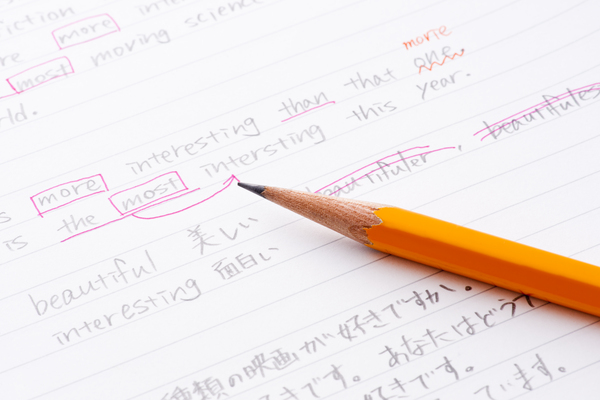 fiction more
most moving science
rld.
movie
s more interesting than that one.
is the most intersting this year.
beautiful 美しい beautifuler, beautifules
interesting 面白い
種類の映画が好きですか。
好きです。あなたはどう
好きです。
ています。